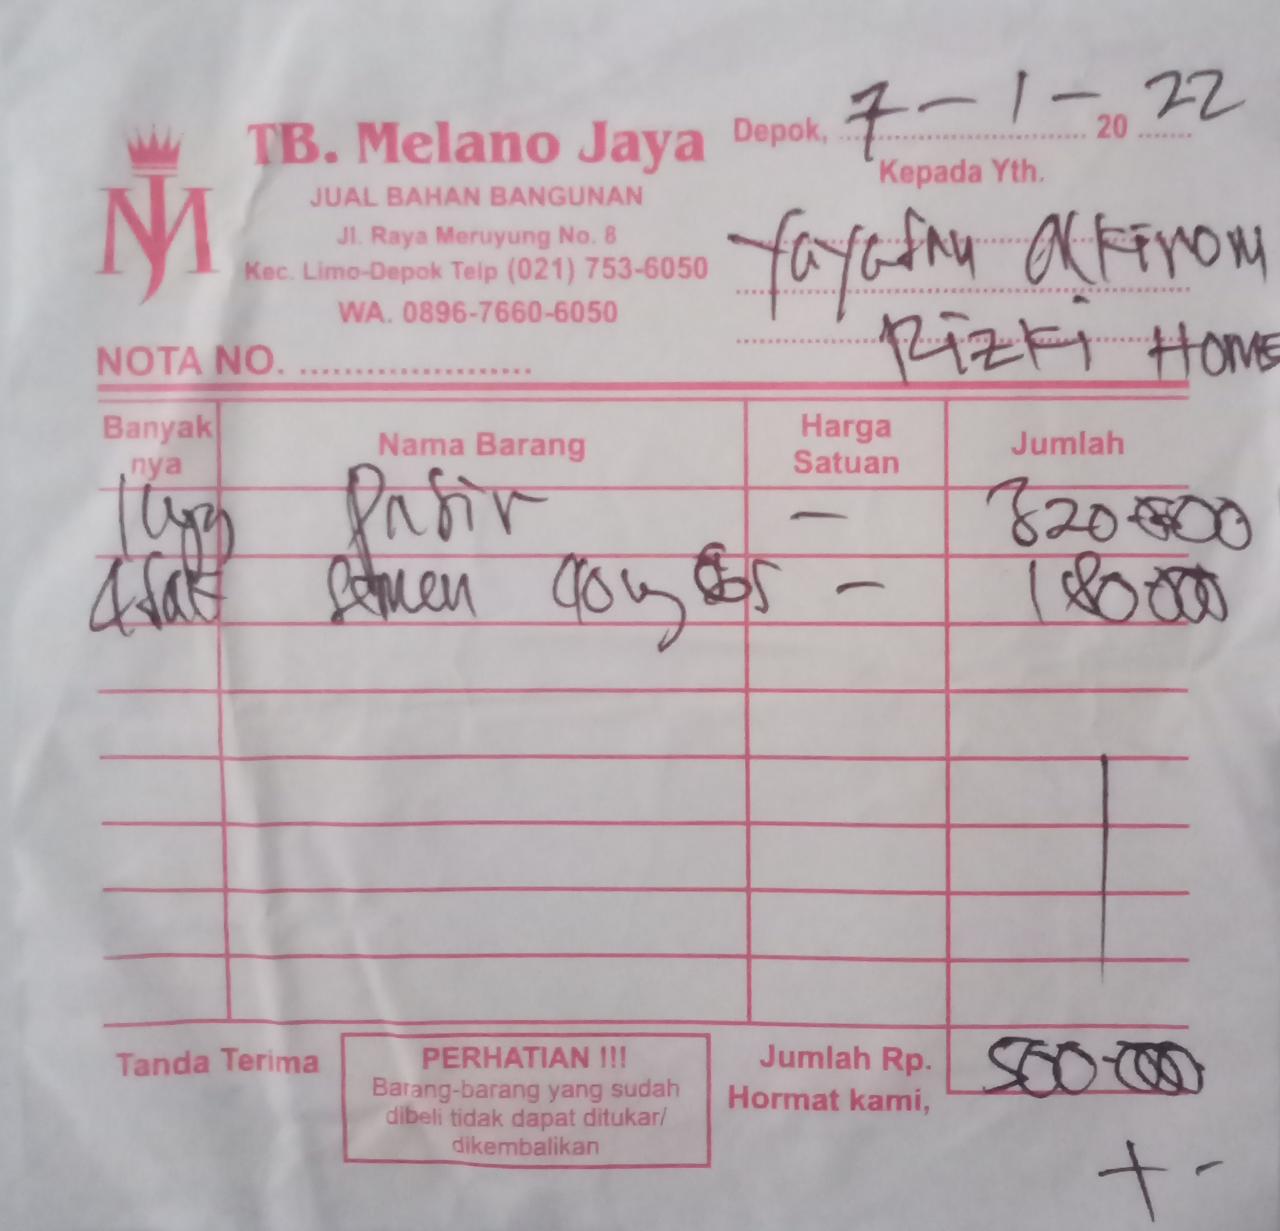 TB. Melano Jaya
JUAL BAHAN BANGUNAN
Jl. Raya Meruyung No. 8
Kec. Limo-Depok Telp (021) 753-6050
WA. 0896-7660-6050
NOTA NO. ....................
Depok, 7 - 1 - 20 22
Kepada Yth.
Yayasan alkirom
Rizki Home
Banyak nya Nama Barang Harga Satuan Jumlah
Pasir - 320.000
4 sak semen 40 kg - 180000
Tanda Terima
PERHATIAN !!!
Barang-barang yang sudah
dibeli tidak dapat ditukar/
dikembalikan
Jumlah Rp. 500.000
Hormat kami,